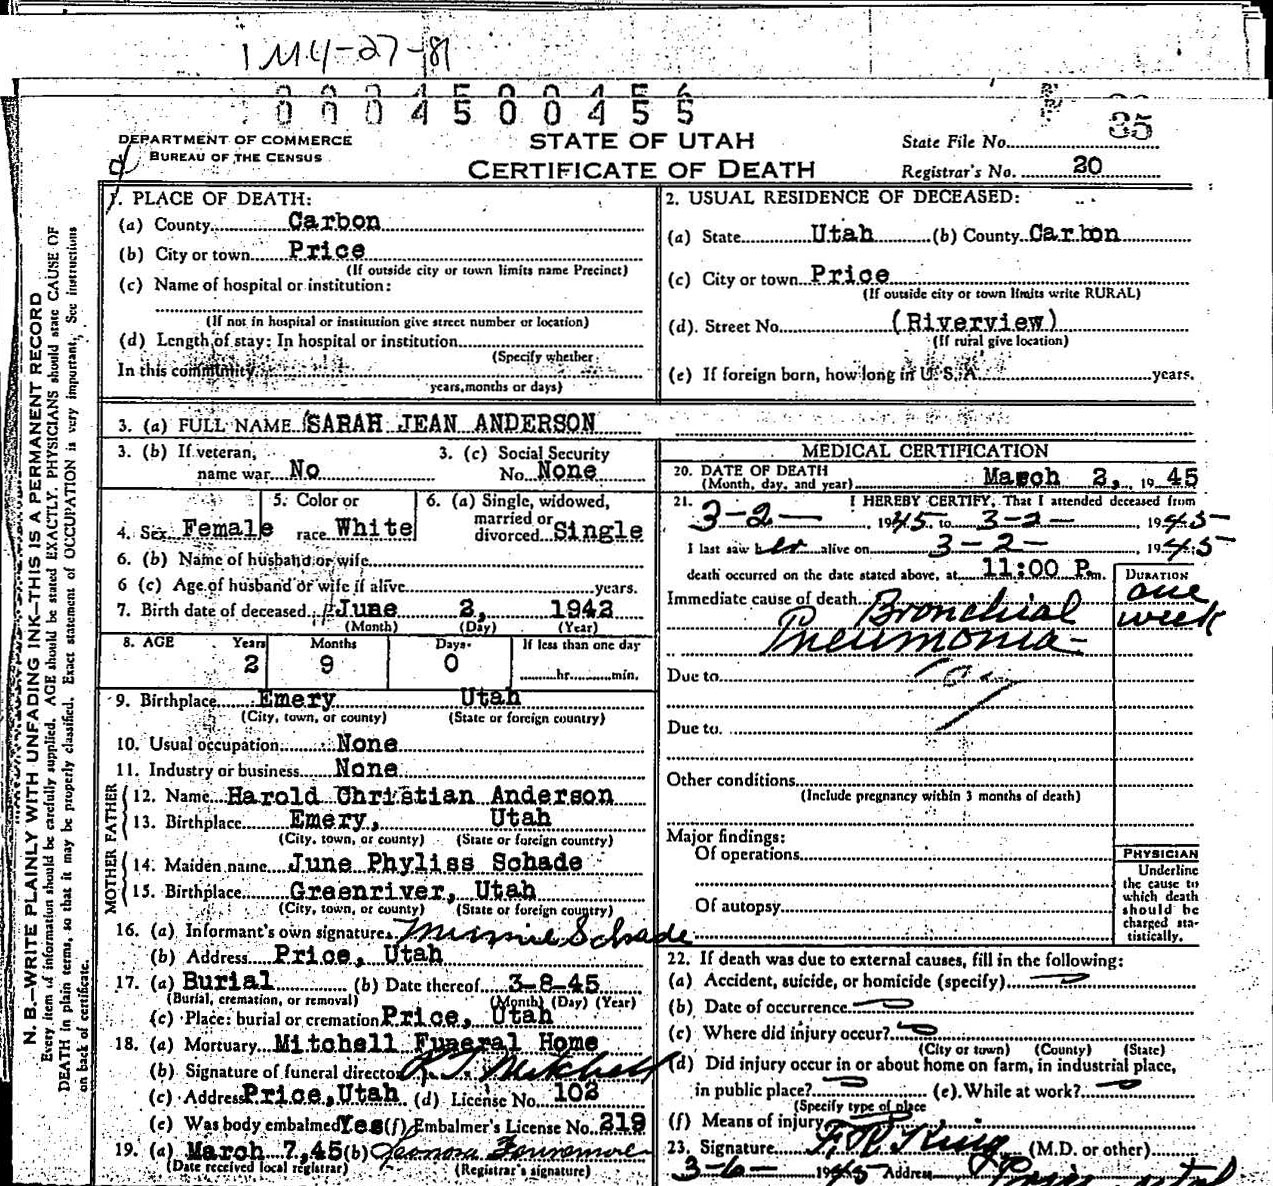 1 M 4-27-81
0 0 0 4 5 0 0 4 5 5
35
DEPARTMENT OF COMMERCE
BUREAU OF THE CENSUS
STATE OF UTAH
CERTIFICATE OF DEATH
State File No.
Registrar's No. 20
N. B.—WRITE PLAINLY WITH UNFADING INK—THIS IS A PERMANENT RECORD
Every item of information should be carefully supplied. AGE should be stated EXACTLY. PHYSICIANS should state CAUSE OF
DEATH in plain terms, so that it may be properly classified. Exact statement of OCCUPATION is very important. See instructions
on back of certificate.
1. PLACE OF DEATH:
(a) County Carbon
(b) City or town Price
(If outside city or town limits name Precinct)
(c) Name of hospital or institution:
(If not in hospital or institution give street number or location)
(d) Length of stay: In hospital or institution
(Specify whether
In this community
years, months or days)
2. USUAL RESIDENCE OF DECEASED:
(a) State Utah (b) County Carbon
(c) City or town Price
(If outside city or town limits write RURAL)
(d) Street No. (Riverview)
(If rural give location)
(e) If foreign born, how long in U. S. A. years.
3. (a) FULL NAME SARAH JEAN ANDERSON
3. (b) If veteran, name war No
3. (c) Social Security No. None
4. Sex Female
5. Color or race White
6. (a) Single, widowed, married or divorced Single
6. (b) Name of husband or wife
6 (c) Age of husband or wife if alive years.
7. Birth date of deceased June 2, 1942
(Month) (Day) (Year)
8. AGE Years Months Days If less than one day
2 9 0 hr. min.
9. Birthplace Emery Utah
(City, town, or county) (State or foreign country)
10. Usual occupation None
11. Industry or business None
FATHER
12. Name Harold Christian Anderson
13. Birthplace Emery, Utah
(City, town, or county) (State or foreign country)
MOTHER
14. Maiden name June Phyliss Schade
15. Birthplace Greenriver, Utah
(City, town, or county) (State or foreign country)
16. (a) Informant's own signature Minnie Schade
(b) Address Price, Utah
17. (a) Burial (b) Date thereof 3-8-45
(Burial, cremation, or removal) (Month) (Day) (Year)
(c) Place: burial or cremation Price, Utah
18. (a) Mortuary Mitchell Funeral Home
(b) Signature of funeral director Mitchell
(c) Address Price, Utah (d) License No. 102
(e) Was body embalmed Yes (f) Embalmer's License No. 219
19. (a) March 7, 45 (b)
(Date received local registrar) (Registrar's signature)
MEDICAL CERTIFICATION
20. DATE OF DEATH
(Month, day, and year) March 2, 19 45
21. I HEREBY CERTIFY, That I attended deceased from
3-2- , 1945, to 3-2- , 1945
I last saw her alive on 3-2- , 1945
death occurred on the date stated above, at 11:00 P.m.
DURATION
Immediate cause of death Bronchial one
Pneumonia- week
Due to
Due to
Other conditions
(Include pregnancy within 3 months of death)
Major findings:
Of operations
Of autopsy
PHYSICIAN
Underline
the cause to
which death
should be
charged sta-
tistically.
22. If death was due to external causes, fill in the following:
(a) Accident, suicide, or homicide (specify)
(b) Date of occurrence
(c) Where did injury occur?
(City or town) (County) (State)
(d) Did injury occur in or about home on farm, in industrial place,
in public place? (e) While at work?
(Specify type of place
(f) Means of injury
23. Signature F. R. King (M.D. or other)
3-6- 1945 Address Price, Utah